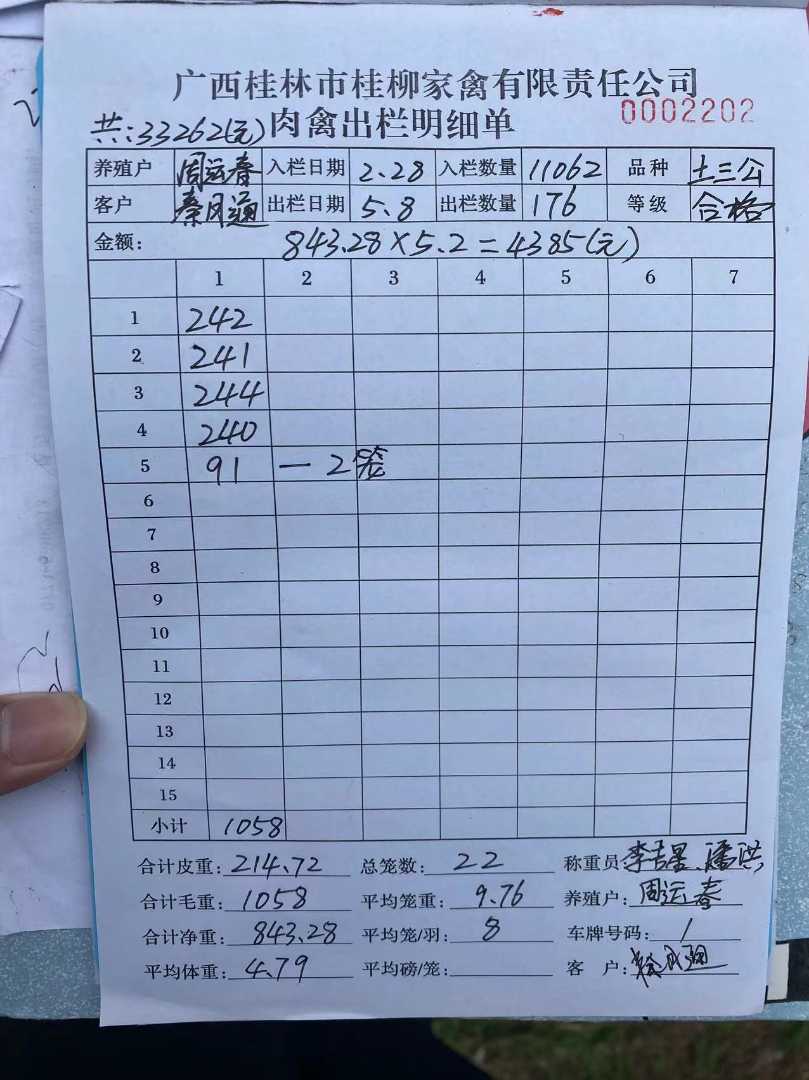 广西桂林市桂柳家禽有限责任公司
共:33262(元) 肉禽出栏明细单 0002202
养殖户 周运春 入栏日期 2.28 入栏数量 11062 品种 土三公
客户 出栏日期 5.8 出栏数量 176 等级 合格
金额: 843.28×5.2=4385(元)
1 2 3 4 5 6 7
1 242
2 241
3 244
4 240
5 91 — 2笼
6
7
8
9
10
11
12
13
14
15
小计 1058
合计皮重: 214.72 总笼数: 22 称重员
合计毛重: 1058 平均笼重: 9.76 养殖户: 周运春
合计净重: 843.28 平均笼/羽: 8 车牌号码: 1
平均体重: 4.79 平均磅/笼: 客 户: